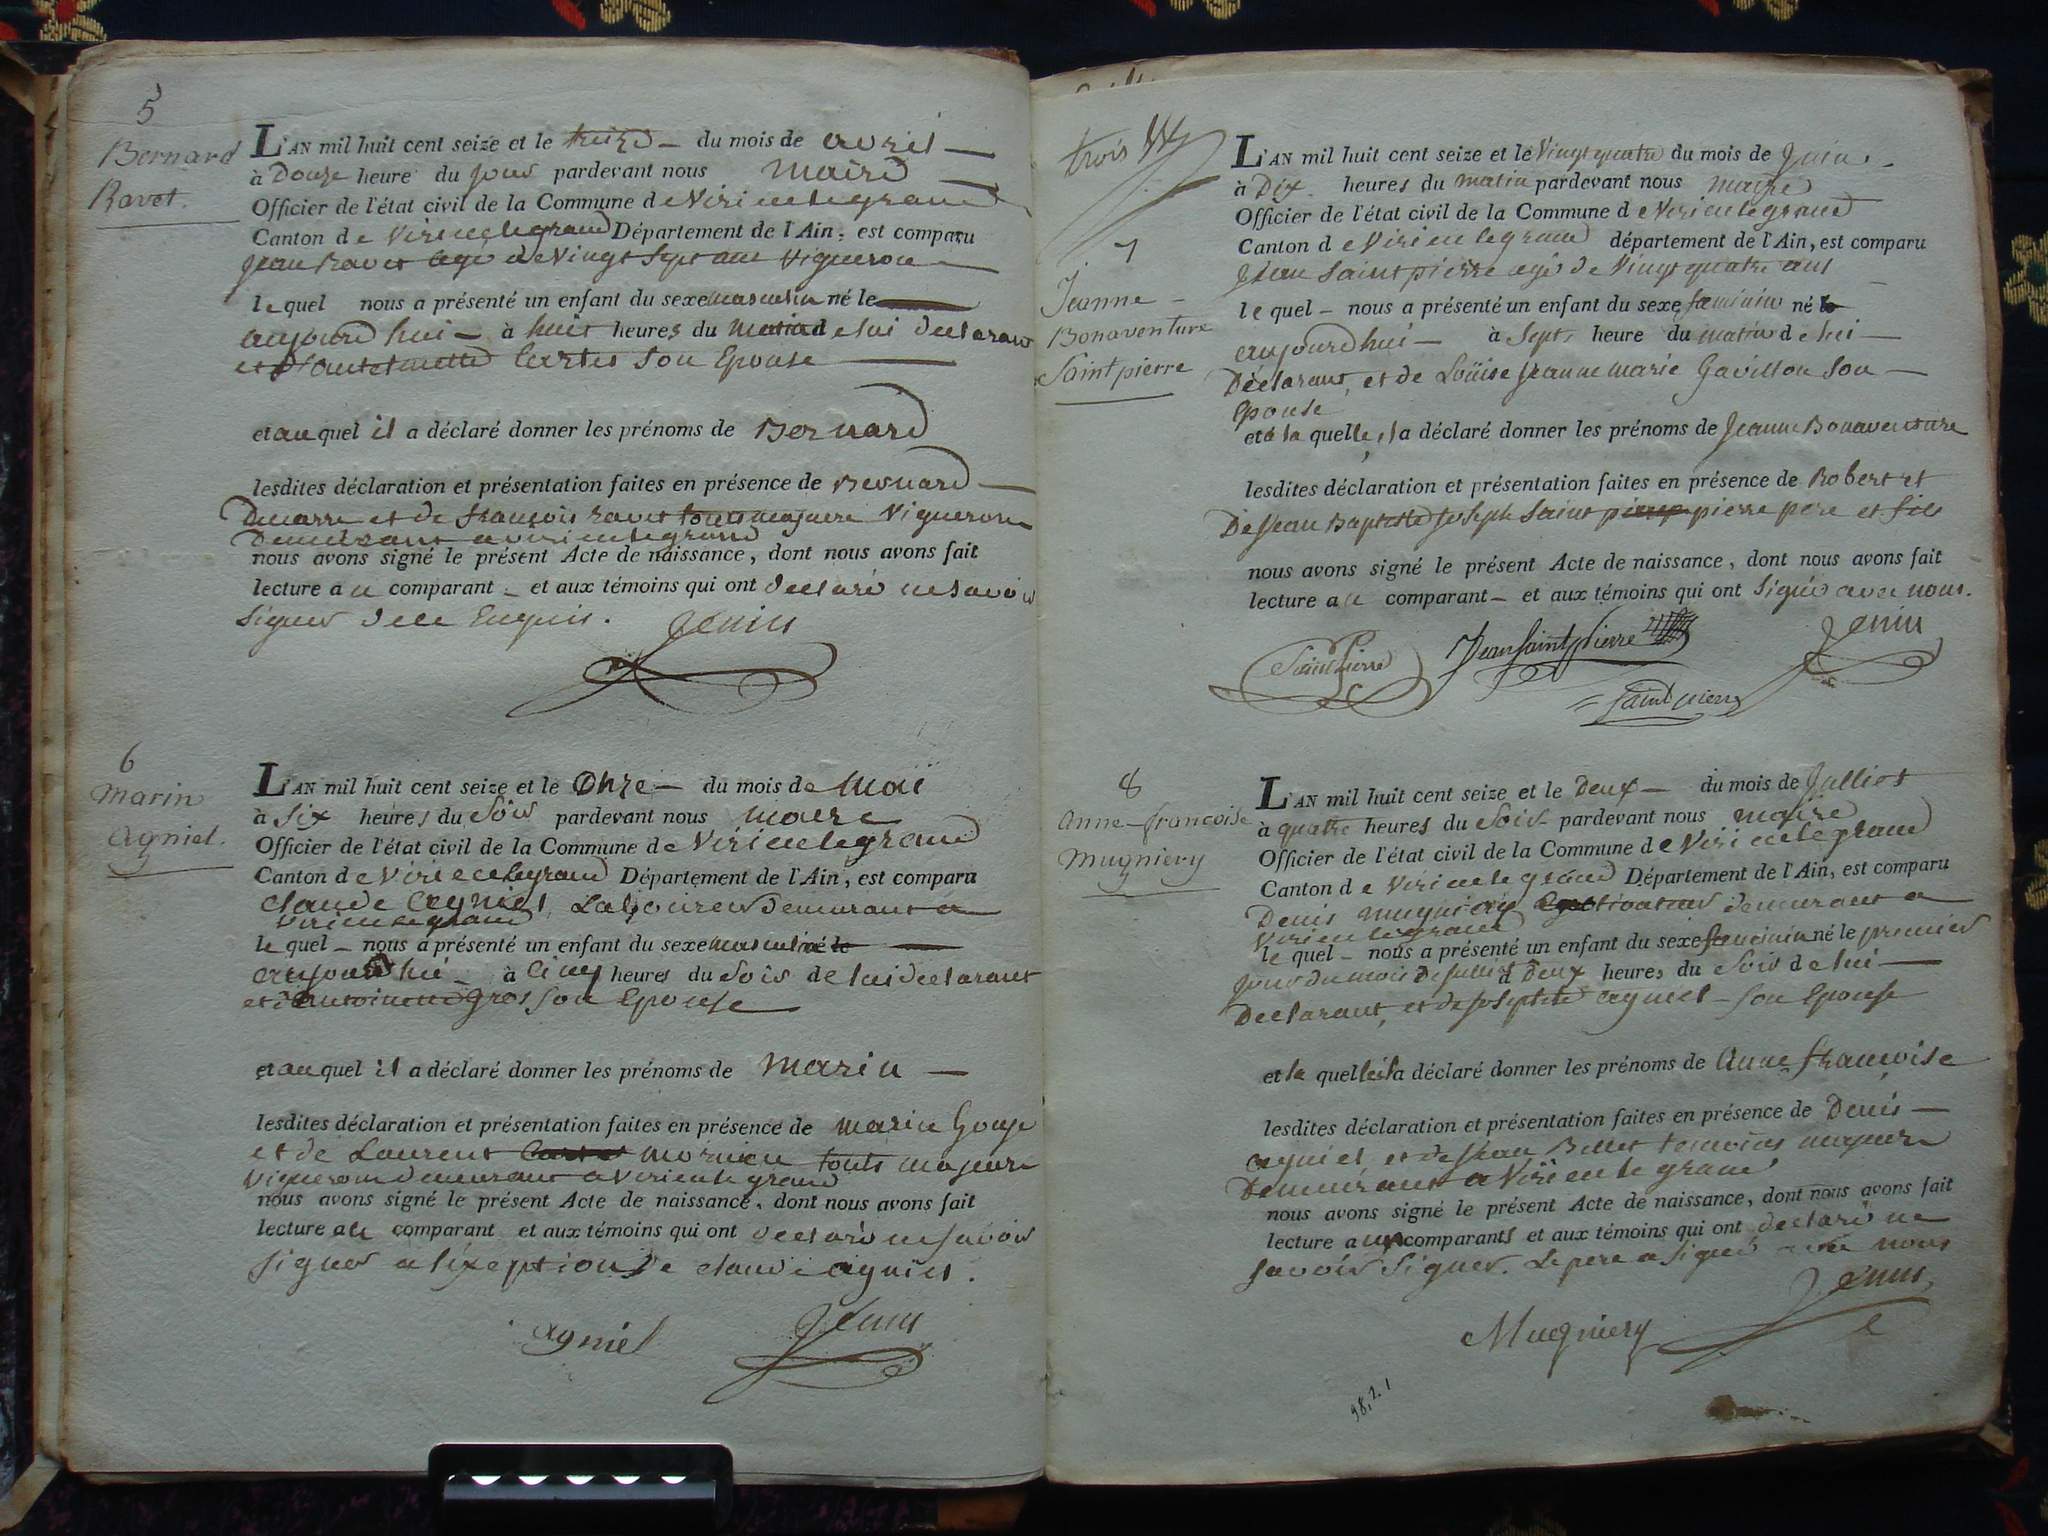 5
Bernard
Ravet.
L'AN mil huit cent seize et le treize du mois de avril
à Douze heure du jour pardevant nous maire
Officier de l'état civil de la Commune de Virieulegrand
Canton de Virieulegrand Département de l'Ain, est comparu
Jean Ravet agé de Vingt Sept ans Vigneron
lequel nous a présenté un enfant du sexe masculin né le
aujourdhui à huit heures du matin de lui declarant
et d'antoinette Son Epouse
et auquel il a déclaré donner les prénoms de Bernard
lesdites déclaration et présentation faites en présence de Bernard
et de françois ravet touts majeure Vigneron
Demeurant a virieulegrand
nous avons signé le présent Acte de naissance, dont nous avons fait
lecture au comparant et aux témoins qui ont declaré ne savoir
Signer de ce Enquis. Jenin
6
Marin
Agniel.
L'AN mil huit cent seize et le Onze du mois de Mai
à Six heures du Soir pardevant nous maire
Officier de l'état civil de la Commune de Virieulegrand
Canton de Virieulegrand Département de l'Ain, est comparu
Claude Agniel Laboureur demurant a
Virieulegrand
lequel nous a présenté un enfant du sexe masculin né le
aujourdhui à Cinq heures du Soir de lui declarant
et d'antoinette Gros Son Epouse
et auquel il a déclaré donner les prénoms de Marin
lesdites déclaration et présentation faites en présence de Marin Gouje
et de Laurent mornieu touts majeure
Vigneron demeurant a Virieulegrand
nous avons signé le présent Acte de naissance, dont nous avons fait
lecture au comparant et aux témoins qui ont declaré ne savoir
Signer a l'exeption de claude agniel.
Agniel Jenin
trois
7
Jeanne
Bonaventure
Saint pierre
L'AN mil huit cent seize et le Vingt quatre du mois de Juin
à Dix heures du matin pardevant nous maire
Officier de l'état civil de la Commune de Virieulegrand
Canton de Virieulegrand département de l'Ain, est comparu
Jean Saint pierre agé de Vingt quatre ans
lequel nous a présenté un enfant du sexe faminin né le
aujourdhui à Sept heure du matin de lui
Déclarant, et de Loüise Jeanne marie Gavillon Son
Epouse
et à la quelle il a déclaré donner les prénoms de Jeanne Bonaventure
lesdites déclaration et présentation faites en présence de Robert et
De Jean Baptiste Joseph Saint pierre pere et fils
nous avons signé le présent Acte de naissance, dont nous avons fait
lecture au comparant et aux témoins qui ont Signé avec nous.
Saint Pierre Jean Saint pierre Jenin
Saint pierre
8
Anne-francoise
Mugniery
L'AN mil huit cent seize et le Deux du mois de Julliet
à quatre heures du Soir pardevant nous maire
Officier de l'état civil de la Commune de Virieulegrand
Canton de Virieulegrand Département de l'Ain, est comparu
Denis Mugniery Cultivateur demurant a
Virieulegrand
lequel nous a présenté un enfant du sexe faminin né le premier
jour du mois de Julliet à Deux heures du Soir de lui
Declarant, et de Josephte agniel Son Epouse
et la quelle il a déclaré donner les prénoms de Anne françoise
lesdites déclaration et présentation faites en présence de Denis
agniel et de Jean Billet temoins majeure
Demeurant a Virieulegrand
nous avons signé le présent Acte de naissance, dont nous avons fait
lecture aux comparants et aux témoins qui ont declaré ne
savoir Signer. Le pere a signé avec nous
Jenin
Mugniery